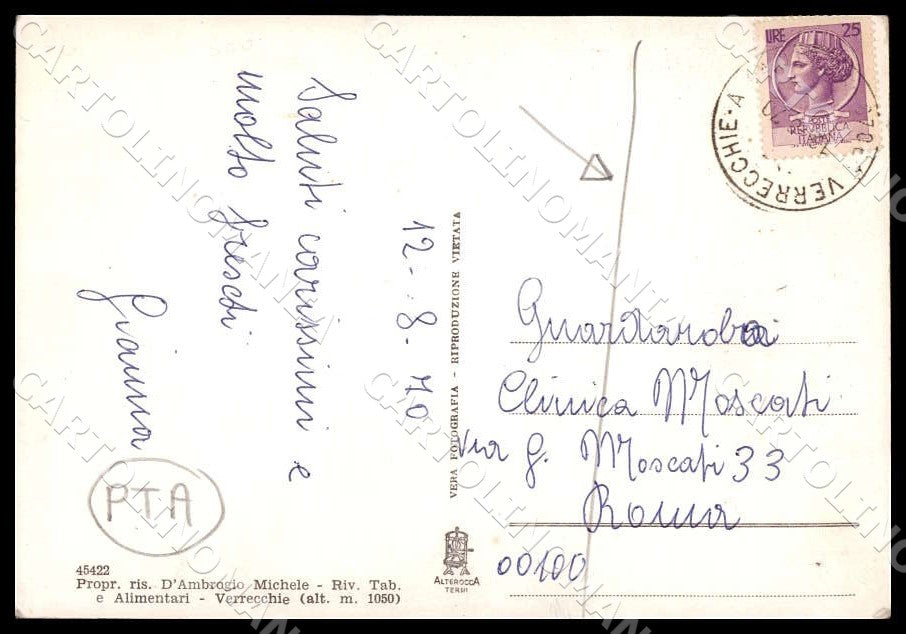 LIRE 25
POSTE
REPUBBLICA
ITALIANA
VERRECCHIE
Saluti carissimi e
molto freschi
Gianna
12-8-70
VERA FOTOGRAFIA - RIPRODUZIONE VIETATA
Guardaroba
Clinica Moscati
Via G. Moscati 33
Roma
00100
PTA
45422
Propr. ris. D'Ambrogio Michele - Riv. Tab.
e Alimentari - Verrecchie (alt. m. 1050)
ALTEROCCA
TERNI
CARTOLINOMANIA